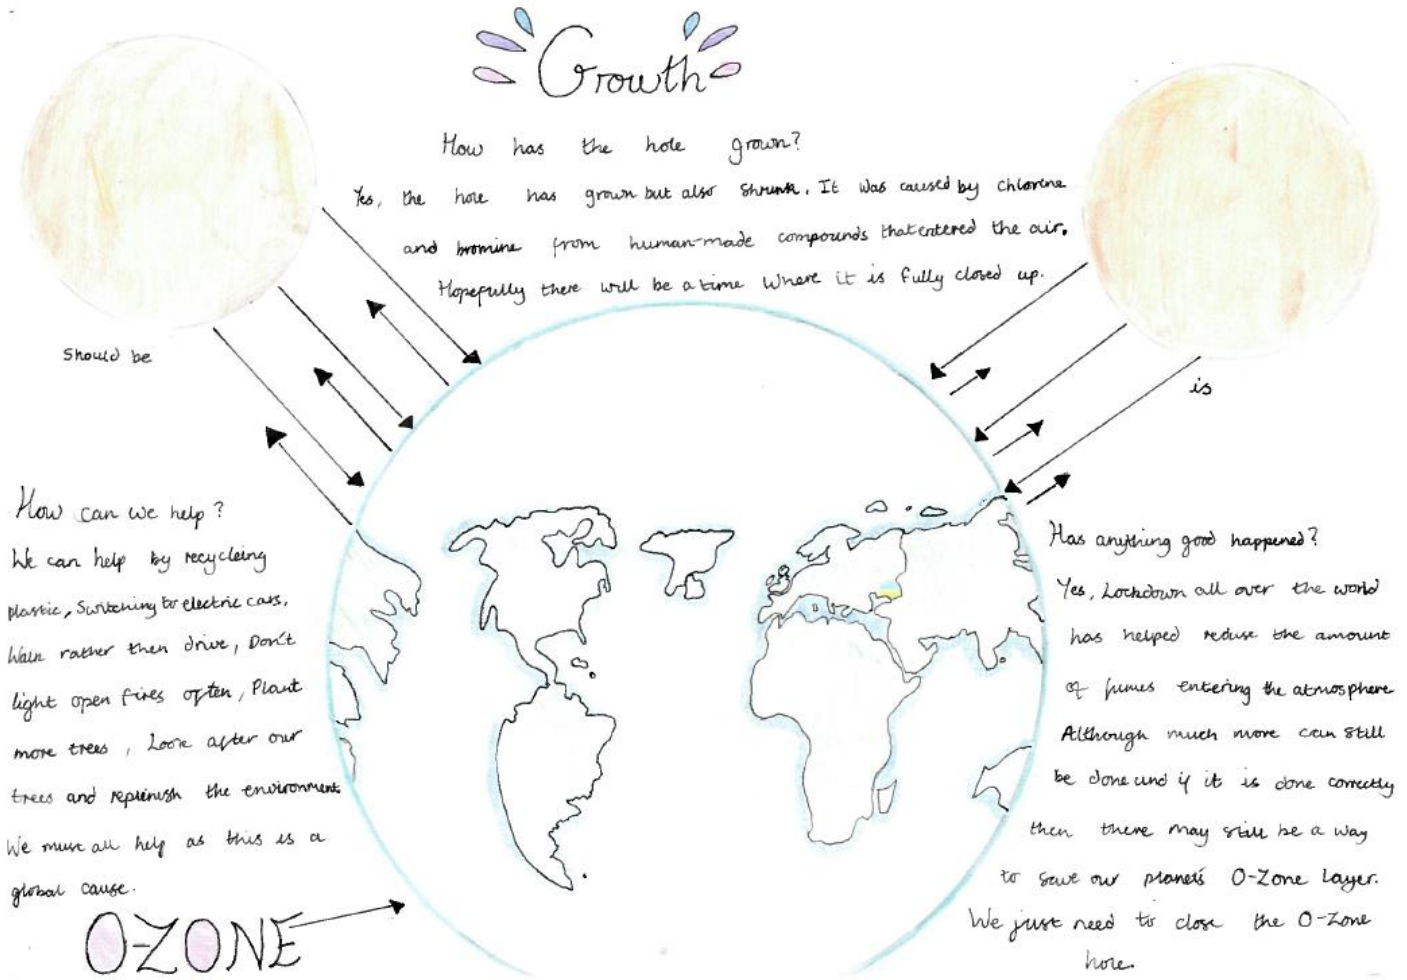 Growth
How has the hole grown?
Yes, the hole has grown but also shrunk. It was caused by chlorene
and bromine from human-made compounds that entered the air.
Hopefully there will be a time where it is fully closed up.
Should be
is
How can we help?
We can help by recycleing
plastic, Switching to electric cars,
Walk rather then drive, Don't
light open fires often, Plant
more trees, Look after our
trees and replenish the environment
We must all help as this is a
global cause.
O-ZONE
Has anything good happened?
Yes, Lockdown all over the world
has helped reduse the amount
of fumes entering the atmosphere
Although much more can still
be done and if it is done correctly
then there may still be a way
to save our planets O-Zone Layer.
We just need to close the O-Zone
hole.